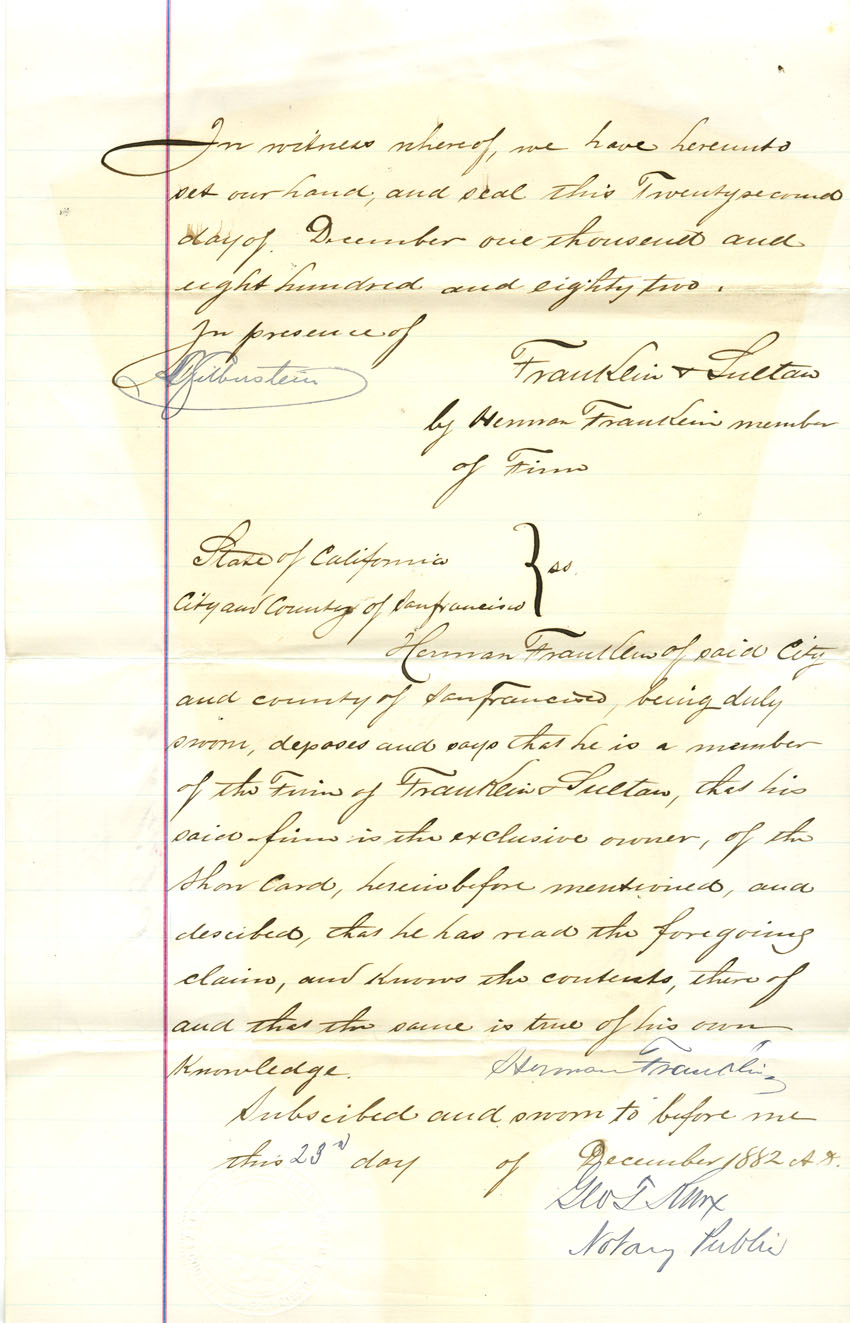 In witness whereof, we have hereunto
set our hand, and seal this Twenty second
day of December one thousend and
eight hundred and eighty two.
In presence of
Silberstein
Franklin & Sultan
by Herman Franklin member
of Firm
State of California
City and County of San francisco } ss.
Herman Franklin of said City
and county of San francisco, being duly
sworn, deposes and says that he is a member
of the Firm of Franklin & Sultan, that his
said firm is the exclusive owner, of the
Show Card, herein before mentioned, and
descibed, that he has read the foregoing
claim, and knows the contents, there of
and that the same is true of his own
Knowledge.
Herman Franklin
Subscibed and sworn to before me
this 23rd day of December 1882 A.D.
Geo T Knox
Notary Public